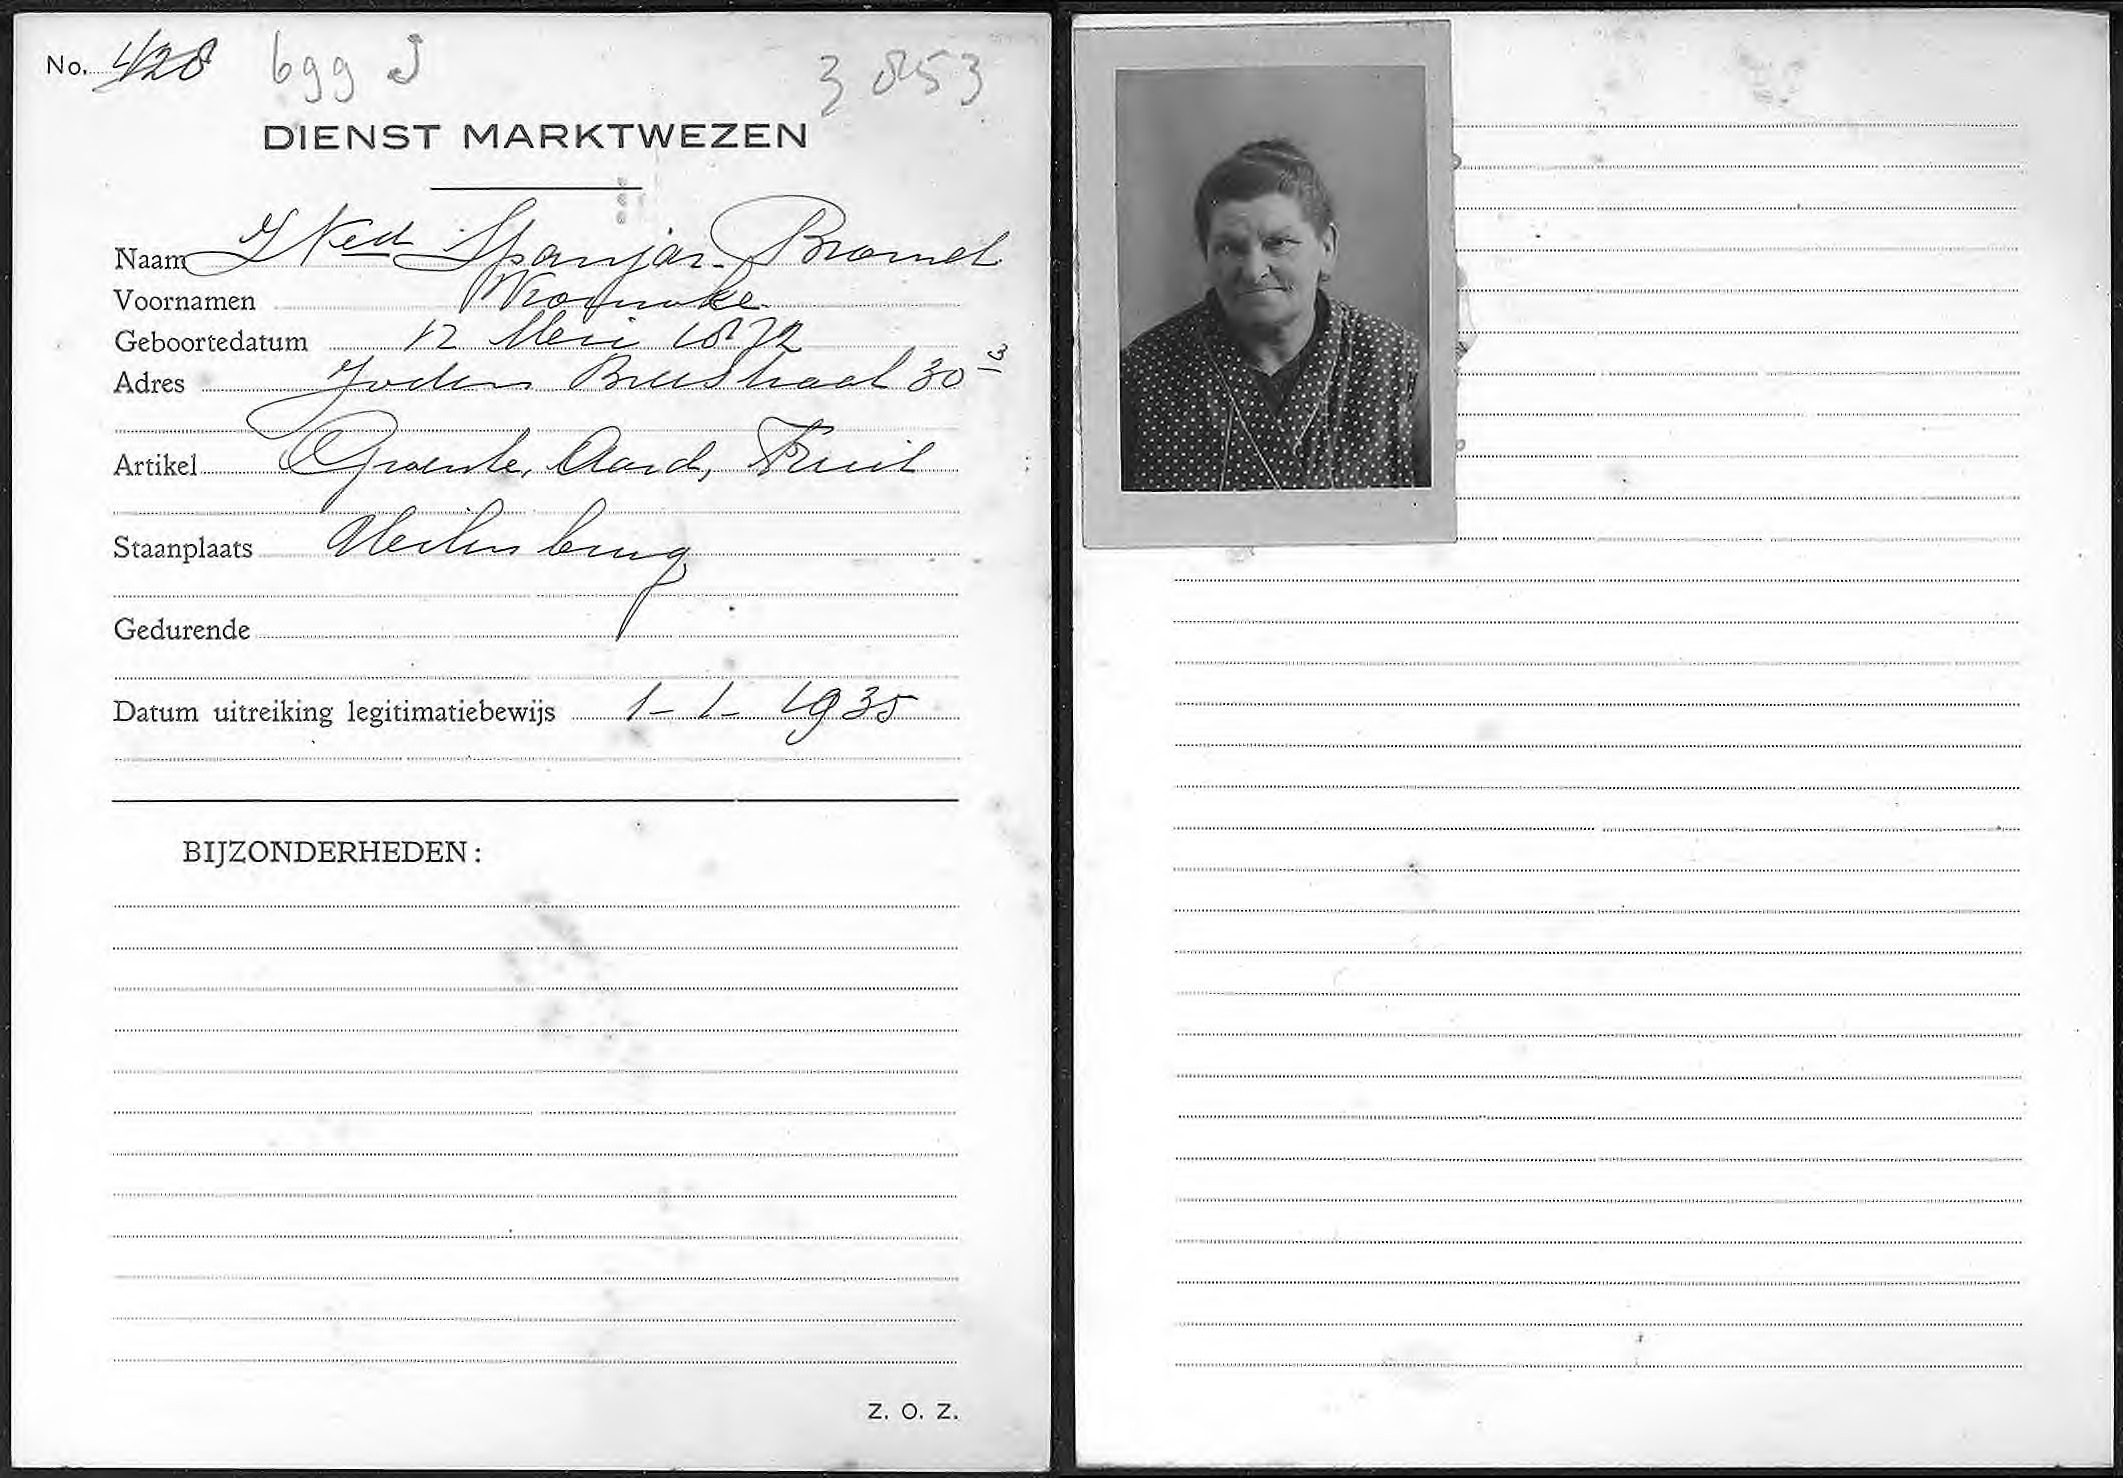 No. 428 699 J 3853
DIENST MARKTWEZEN
Naam Spanjar-Bromet
Voornamen Vrouwke
Geboortedatum 12 Mei 1872
Adres Joden Breestraat 30 3
Artikel Groente, Aard, Fruit
Staanplaats
Gedurende
Datum uitreiking legitimatiebewijs 1-1-1935
BIJZONDERHEDEN:
Z. O. Z.